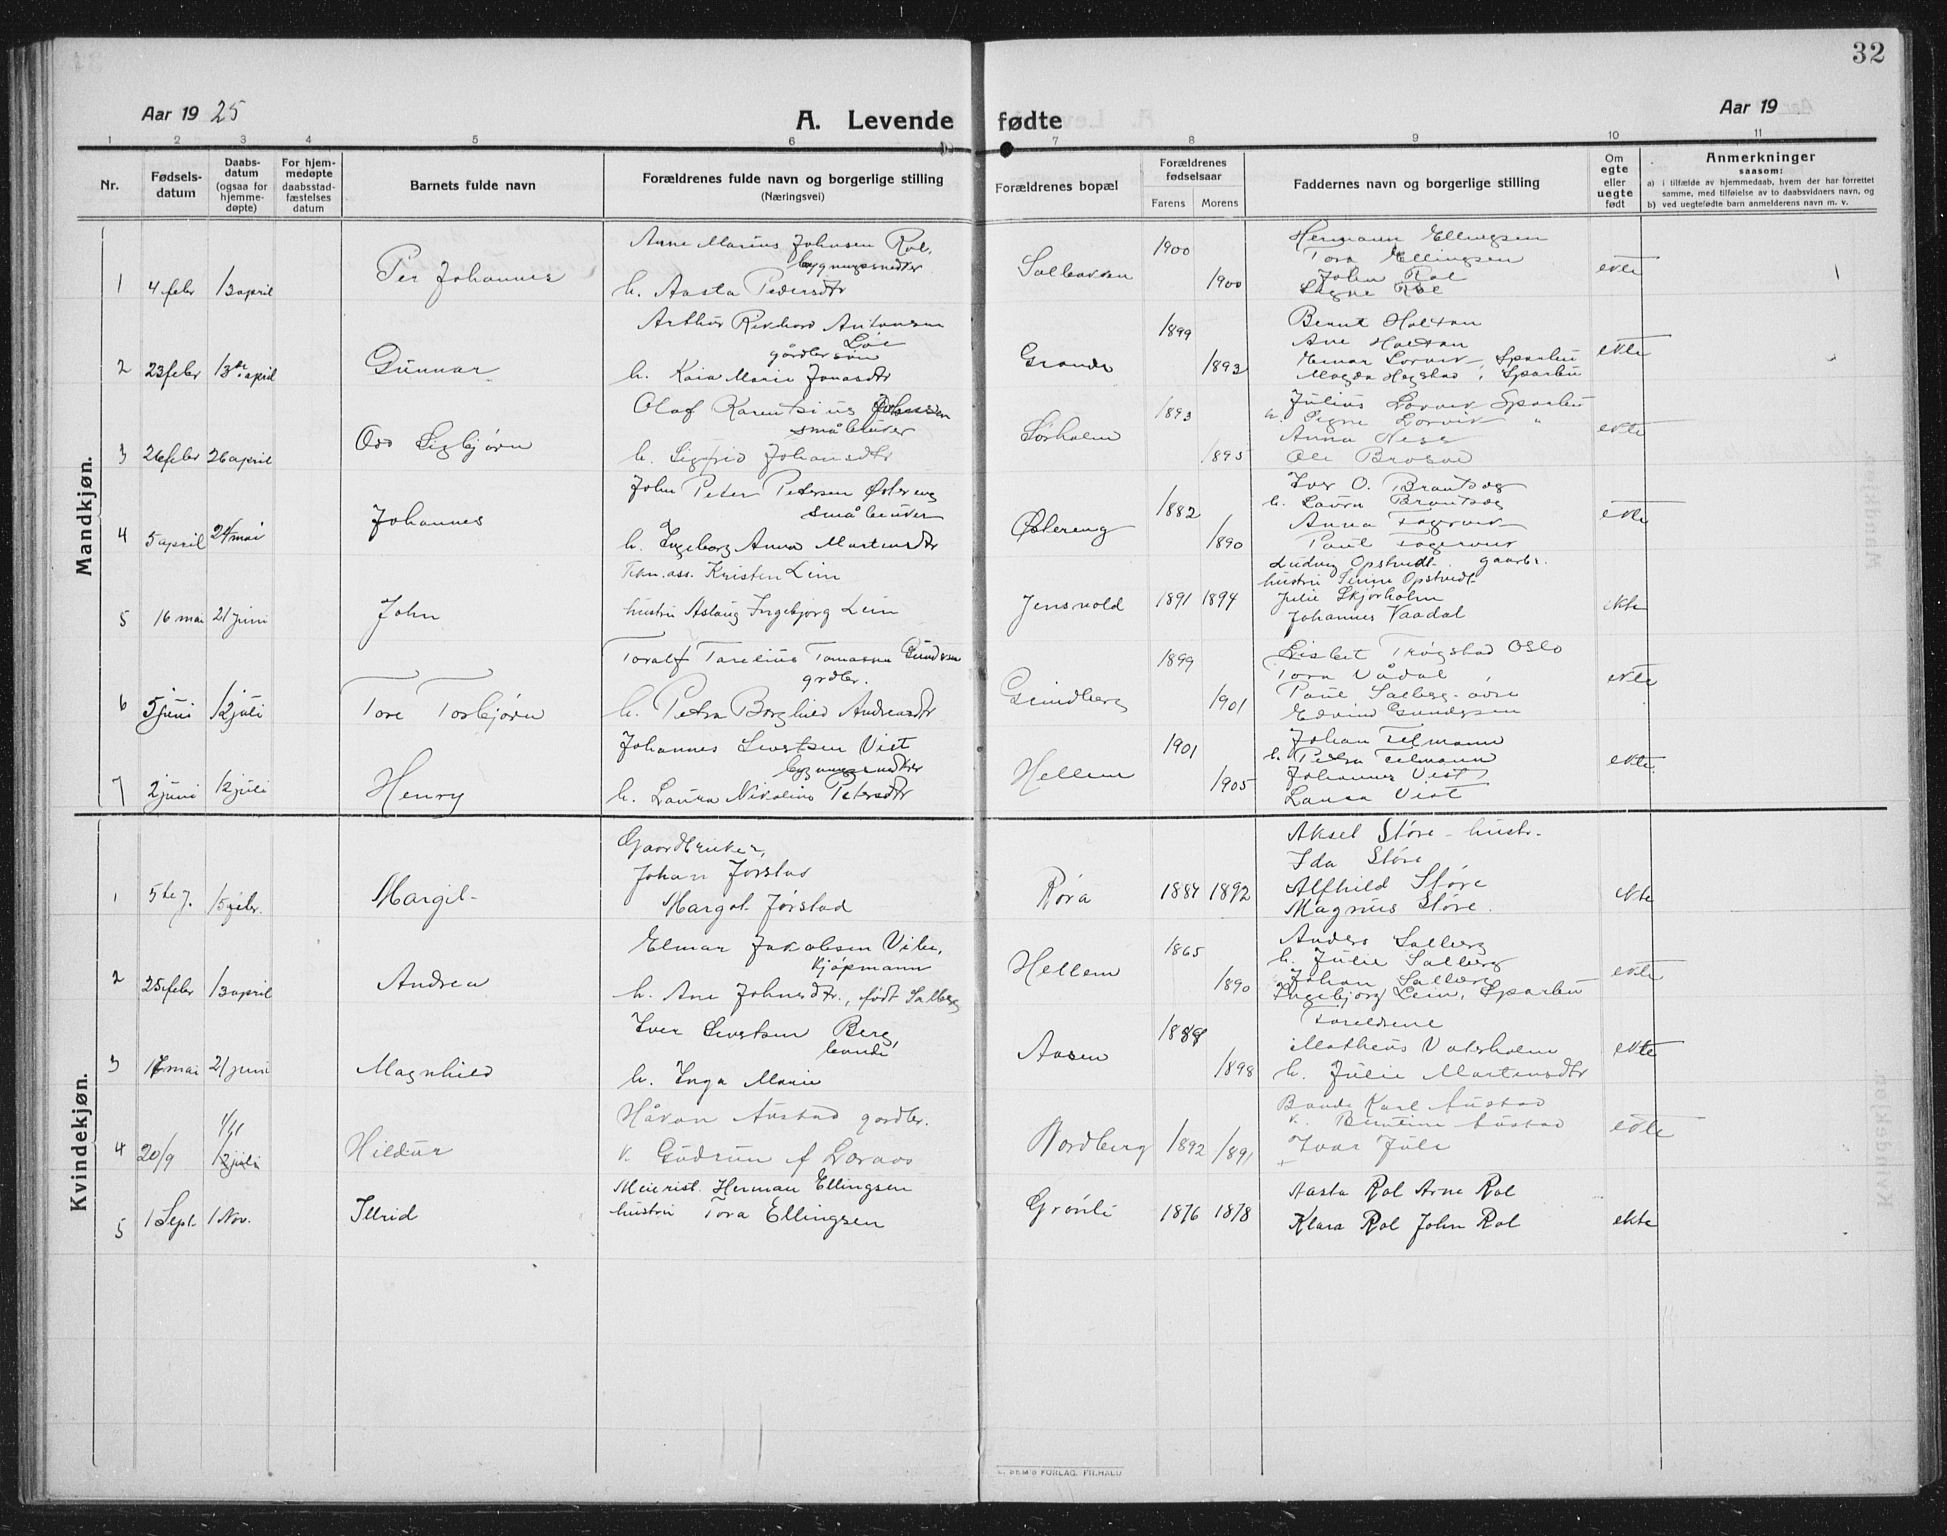 32
Aar 19 25
A. Levende fødte
Aar 19
1 2 3 4 5 6 7 8 9 10 11
Nr.
Fødsels-datum
Daabs-datum (ogsaa for hjemme-døpte)
For hjem-medøpte daabsstad-fæstelses datum
Barnets fulde navn
Forældrenes fulde navn og borgerlige stilling (Næringsvei)
Forældrenes bopæl
Forældrenes fødselsaar
Farens Morens
Faddernes navn og borgerlige stilling
Om egte eller uegte født
Anmerkninger
saasom:
a) i tilfælde av hjemmedaab, hvem der har forrettet samme, med tilføielse av to daabsvidners navn, og
b) ved uegtefødte barn anmelderens navn m. v.
Mandkjøn.
1 4 febr 13 april Per Johannes
Arne Marius Johnsen Rol,
bygningssnedker
h. Aasta Pedersdtr
Salhavsen 1900 1900
Hermann Ellingsen
Tora Ellingsen
John Rol
Signe Rol
ekte
2 23 febr 13de april Gunnar
Arthur Rikhard Antonsen
Løe
gårdbr søn
h. Kaia Marie Jonasdtr
Grande 1899 1893
Bernt Holtan
Ane Holtan
Einar Lorvik, Sparbu
Magda Hegstad, Sparbu
ekte
3 26 febr 26 april Odd Sigbjørn
Olaf Karentsius Johnsen
småbruker
h. Sigfrid Johansdtr
Sørholm 1893 1895
Julius Lorvik Sparbu
h. Signe Lorvik "
Anna Ness
Ole
ekte
4 5 april 24 mai Johannes
John Peter Petersen Østereng
småbruker
h. Ingeborg Anna Martensdtr
Østereng 1882 1890
Iver O. Brantsæg
h. Laura Brantsæg
Anna Fagervik
Paul Fagervik
ekte
5 16 mai 21 juni John
Tekn. ass. Kristen Lein
hustru Aslaug Ingebjorg Lein
Jensvold 1891 1894
Ludvig Opstvedt. gaarbr.
hustru Sinne Opstvedt
Julie Skjørholm
Johannes Vaadal
ekte
6 5 juni 12 juli Tore Torbjørn
Toralf Torelius Tomassen Gundersen
grdbr.
h. Petra Borghild Andreasdtr
Grindberg 1899 1901
Lisbet Trøgstad Oslo
Tora Vådal
Paul Salberg øvre
Edvin Gundersen
ekte
7 2 juni 12 juli Henry
Johannes Sivertsen Vist
bygningssnedker
h. Laura Nikoline Petersdtr
Hellem 1901 1905
Johan Telmann
h. Petra Telmann
Johannes Vist
Laura Vist
ekte.
Kvindekjøn.
1 5te J. 15 febr. Margit
Gaardbruker,
Johan Jørstad
Margot Jørstad
Røra 1887 1892
Aksel Støre - hustr.
Ida Støre
Alfhild Støre
Magnus Støre.
ekte
2 25 febr 13 april Andrea
Elmar Jakobsen Vibe,
kjøpmann
h. Ane Johnsdtr., født Salberg
Hellem 1865 1890
Anders Salberg
h. Julie Salberg
Johan Salberg
Ingebjorg Lein, Sparbu
ekte
3 16 mai 21 juni Magnhild
Iver Sivertsen Berg,
bonde
h. Inga Marie
Aasen 1888 1898
Foreldrene
Matheus Vatsholm
h. Julie Martensdtr
ekte
4 20/9 1/11 12 juli Hildur
Håkon Austad gardbr.
k. Gudrun f Loraas
Nordberg 1892 1891
Bonde Karl Austad
k. Bentine Austad
Ivar Jule
ekte
5 1 Sept. 1 Nov. Illrid
Meierist. Herman Ellingsen
hustru Tora Ellingsen
Grønli 1876 1878
Aasta Rol Arne Rol
Klara Rol John Rol
ekte
E. SEM'S FORLAG, FR.HALD